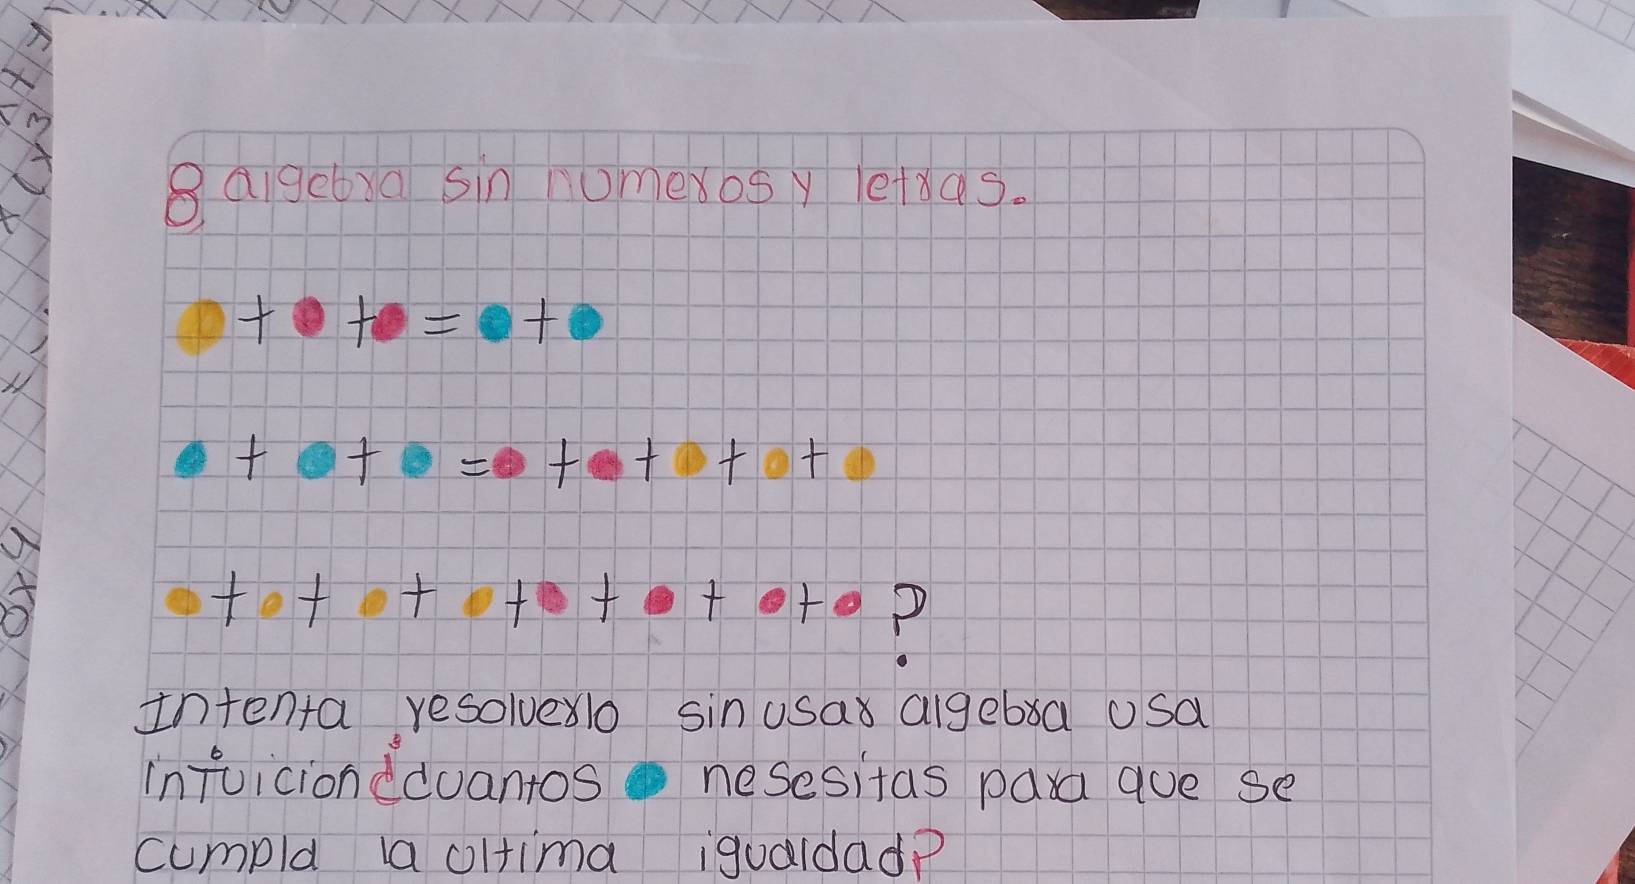 8 algebra sin numeros y letras.
+ + = +
+ + = + + + +
+ + + + + + + ?
Intenta resolverlo sin usar algebra usa
intuicion ¿cuantos nesesitas para que se
cumpla la ultima igualdad?